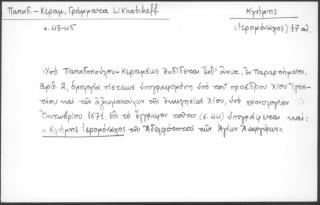 Παπαδ.-Κεραμ., Γράμματα Likhatcheff
Κλήμης
σ. 43-45
(ἱερομόναχος) 17 αἰ.
Ὑπὸ Παπαδοπούλου-Κεραμέως ἐκδίδεται ἔνθ' ἄνωτ., ἐν Παραρτήματι,
ἀριθ. 2, ὁμολογία πίστεως ὑπογραφομένη ὑπὸ τοῦ προέδρου Χίου Ἰγνα-
τίου καὶ τῶν ἀξιωματούχων τῆς ἐκκλησίας Χίου, ὑπὸ χρονολογίαν
Ὀκτωβρίου 1671. Εἰς τὸ ἔγγραφον τοῦτο (σ. 44) ὑπογράφεται καί:
ὁ Κλήμης ἱερομόναχος τῆς Ἀδελφότητος τῶν Ἁγίων Ἀναργύρων